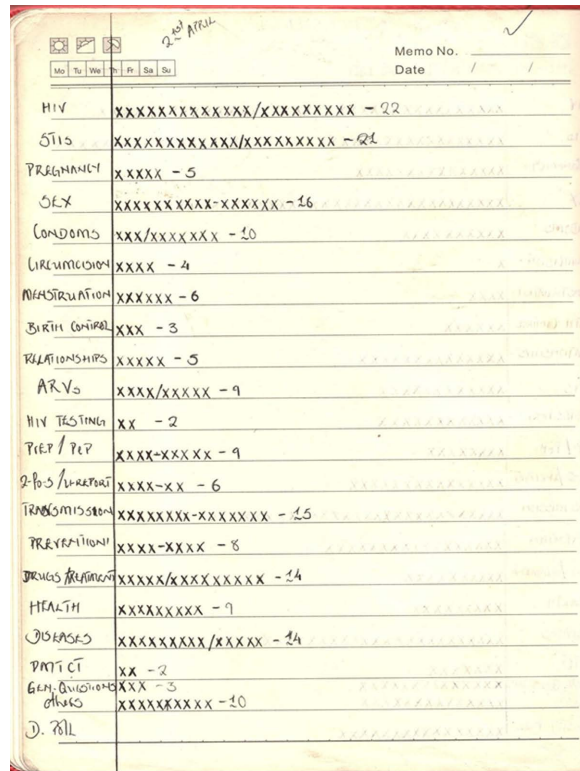 2nd APRIL
Memo No.
Mo Tu We Th Fr Sa Su
Date / /
HIV xxxxxxxxxxxxx/xxxxxxxxx - 22
STIs xxxxxxxxxxxx/xxxxxxxxx - 21
PREGNANCY xxxxx - 5
SEX xxxxxxxxxx-xxxxxx - 16
CONDOMS xxx/xxxxxxx - 10
CIRCUMCISION xxxx - 4
MENSTRUATION xxxxxx - 6
BIRTH CONTROL xxx - 3
RELATIONSHIPS xxxxx - 5
ARVs xxxx/xxxxx - 9
HIV TESTING xx - 2
PrEP / PEP xxxx-xxxxx - 9
xxxx-xx - 6
TRANSMISSION xxxxxxxx-xxxxxxx - 15
PREVENTION xxxx-xxxx - 8
DRUGS/TREATMENT xxxxx/xxxxxxxxx - 14
HEALTH xxxxxxxxx - 9
DISEASES xxxxxxxxx/xxxxx - 14
PMTCT xx - 2
GEN. QUESTIONS xxx - 3
others xxxxxxxxxx - 10
D. POLL